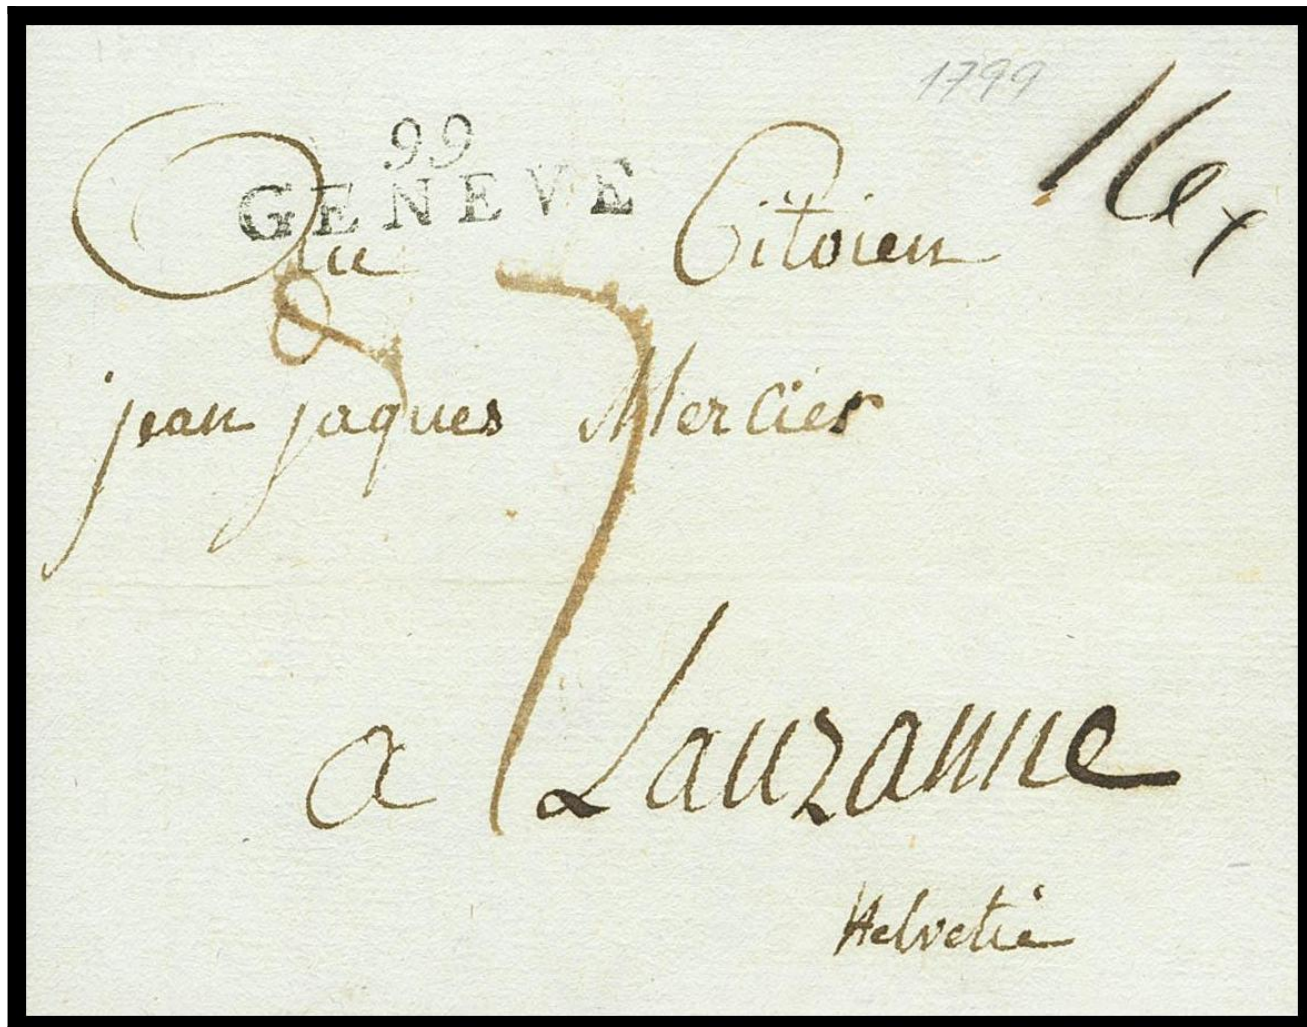 1799
99
GENEVE
Au Citoien
jean jaques Mercier
7
a Lauzanne
Helvetie